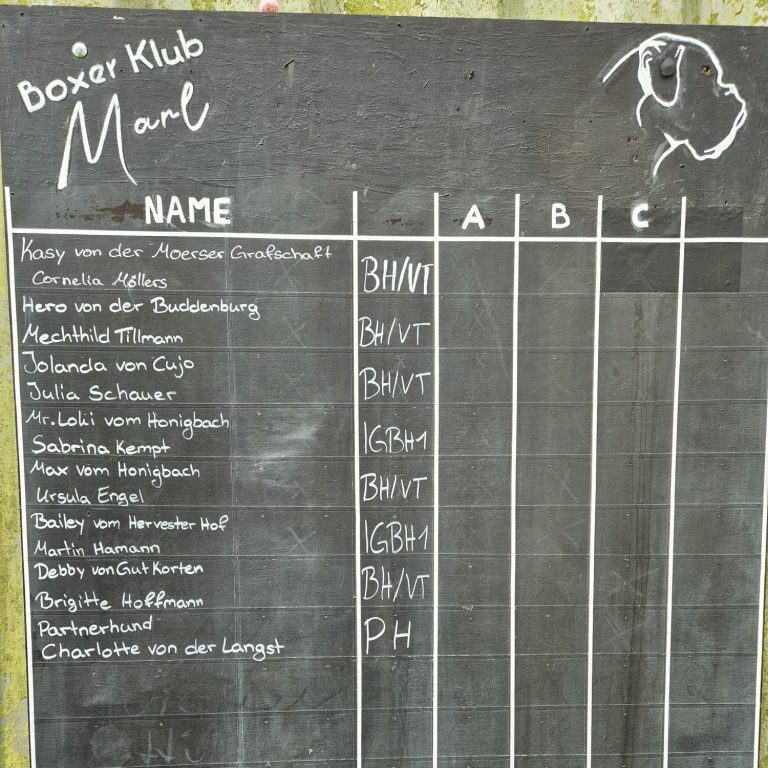 Boxer Klub
Marl
NAME A B C
Kasy von der Moerser Grafschaft
Cornelia Möllers BH/VT
Hero von der Buddenburg
Mechthild Tillmann BH/VT
Jolanda von Cujo
Julia Schauer BH/VT
Mr. Loki vom Honigbach
Sabrina Kempt IGBH1
Max vom Honigbach
Ursula Engel BH/VT
Bailey vom Hervester Hof
Martin Hamann IGBH1
Debby von Gut Korten
Brigitte Hoffmann BH/VT
Partnerhund
Charlotte von der Langst PH